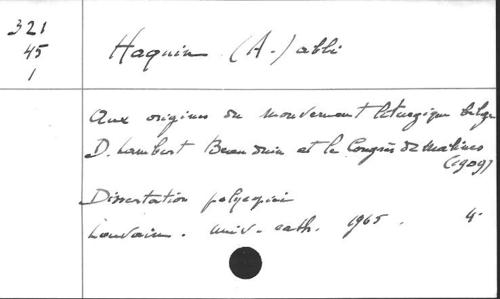 321
45
1
Haquin (A.) abbé
Aux origines du mouvement liturgique belge
D. Lambert Beauduin et le Congrès de Malines
(1909)
Dissertation polycopiée
Louvain. Univ. cath. 1965. 4°